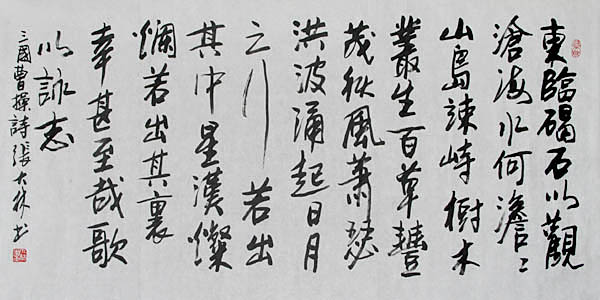 東臨碣石以觀
滄海水何澹々
山島竦峙樹木
叢生百草豐
茂秋風蕭瑟
洪波涌起日月
之行若出
其中星漢燦
爛若出其裏
幸甚至哉歌
以詠志
三國曹操詩張大林书